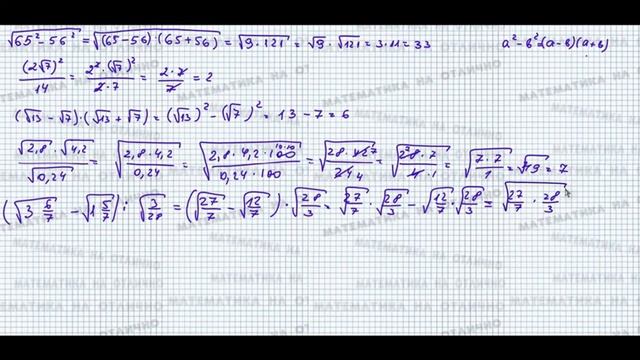 √(65² - 56²) = √((65-56)·(65+56)) = √(9·121) = √9 · √121 = 3·11 = 33   a² - b² = (a-b)(a+b)
(2√7)²/14 = 2²·(√7)²/(2·7) = 2·7/7 = 2
(√13 - √7)·(√13 + √7) = (√13)² - (√7)² = 13 - 7 = 6
√2,8 · √4,2 / √0,24 = √(2,8·4,2/0,24) = √(2,8·4,2·100/(0,24·100)) = √(28·42/24) = √(28·7/4·1) = √(7·7/1) = √49 = 7
(√(3 6/7) - √(1 5/7)) : √(3/28) = (√(27/7) - √(12/7)) · √(28/3) = √(27/7) · √(28/3) - √(12/7) · √(28/3) = √(27/7 · 28/3)
МАТЕМАТИКА НА ОТЛИЧНО